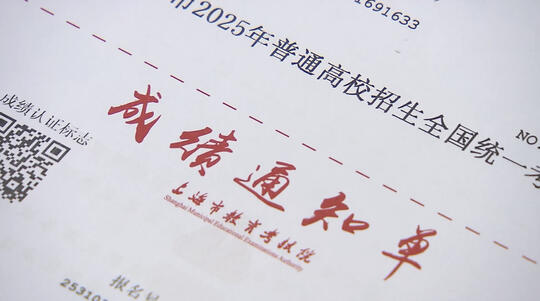 1691633
市2025年普通高校招生全国统一考
NO
成绩认证标志
成绩通知单
上海市教育考试院
Shanghai Municipal Educational Examinations Authority
报名号
253102